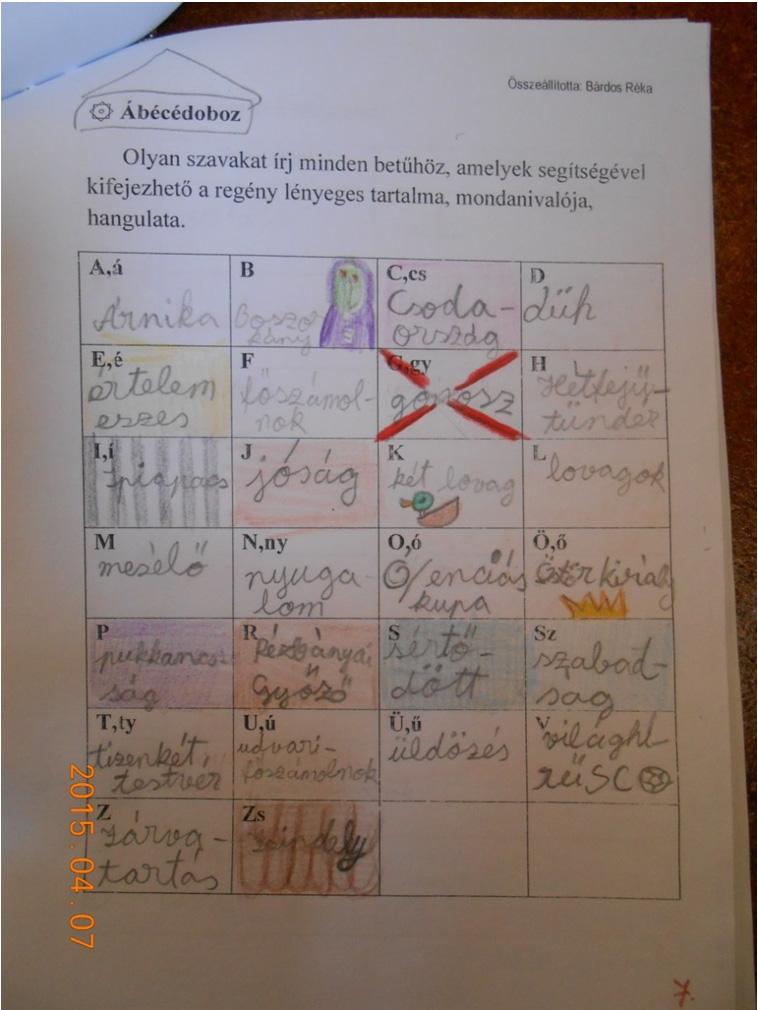 Összeállította: Bárdos Réka
Ábécédoboz
Olyan szavakat írj minden betűhöz, amelyek segítségével
kifejezhető a regény lényeges tartalma, mondanivalója,
hangulata.
A,á
Árnika
B
Boszor
kány
C,cs
Csoda-
ország
D
düh
E,é
értelem
eszes
F
főszámol-
nok
G,gy
gonosz
H
Hétfejű-
tündér
I,í
Ipiapacs
J
jóság
K
két lovag
L
lovagok
M
mesélő
N,ny
nyuga-
lom
O,ó
Óenciás
kupa
Ö,ő
Östör király
P
pukkancs-
ság
R
Rézbányai
Győző
S
sértő-
dött
Sz
szabad-
ság
T,ty
tizenkét
testvér
U,ú
udvari-
főszámolnok
Ü,ű
üldözés
V
világhí-
rű SC
Z
Zárva-
tartás
Zs
2015.04.07
7.